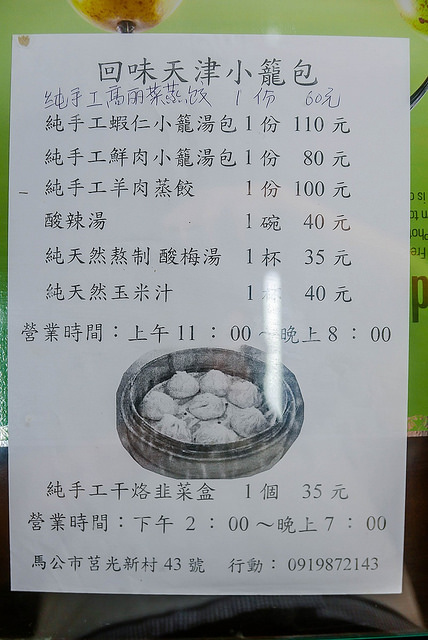 回味天津小籠包
純手工高麗菜蒸餃 1份 60元
純手工蝦仁小籠湯包 1 份 110 元
純手工鮮肉小籠湯包 1 份 80 元
純手工羊肉蒸餃 1 份 100 元
酸辣湯 1 碗 40 元
純天然熬制 酸梅湯 1 杯 35 元
純天然玉米汁 1 杯 40 元
營業時間：上午 11：00～晚上 8：00
純手工干烙韭菜盒 1 個 35 元
營業時間：下午 2：00～晚上 7：00
馬公市莒光新村 43 號 行動：0919872143